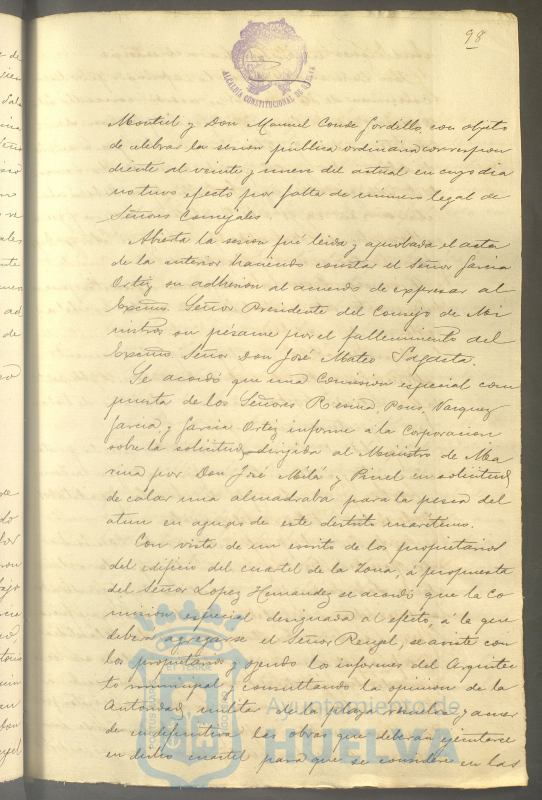 98
ALCALDIA CONSTITUCIONAL DE HUELVA
Montiel y Don Manuel Conde Gordillo, con objeto
de celebrar la sesion pública ordinaria correspon
diente al veinte y nueve del actual en cuyo dia
no tuvo efecto por falta de número legal de
Señores Concejales
Abierta la sesion fué leida y aprobada el acta
de la anterior haciendo constar el Señor Garcia
Ortiz su adhesion al acuerdo de expresar al
Excmo. Señor Presidente del Consejo de Mi
nistros su pésame por el fallecimiento del
Excmo. Señor Don José Mateo Sagasta.
Se acordó que una Comision especial com
puesta de los Señores Resina, Pons, Vazquez
Garcia, y Garcia Ortiz informe á la Corporacion
sobre la solicitud dirigida al Ministro de Ma
rina por Don José Milá y Pinel en solicitud
de calar una almadraba para la pesca del
atun en aguas de este distrito maritimo.
Con vista de un escrito de los propietarios
del edificio del cuartel de la Zona, á propuesta
del Señor Lopez Hernandez se acordó que la Co
mision especial designada al efecto, á la que
deberá agregarse el Señor Rengel, se aviste con
los propietarios y oyendo los informes del Arquitec
to municipal y consultando la opinion de la
Autoridad militar de la plaza resuelva y acuer
de en definitiva las obras que deberán ejecutarse
en dicho cuartel para que se considere en las
Ayuntamiento de
HUELVA